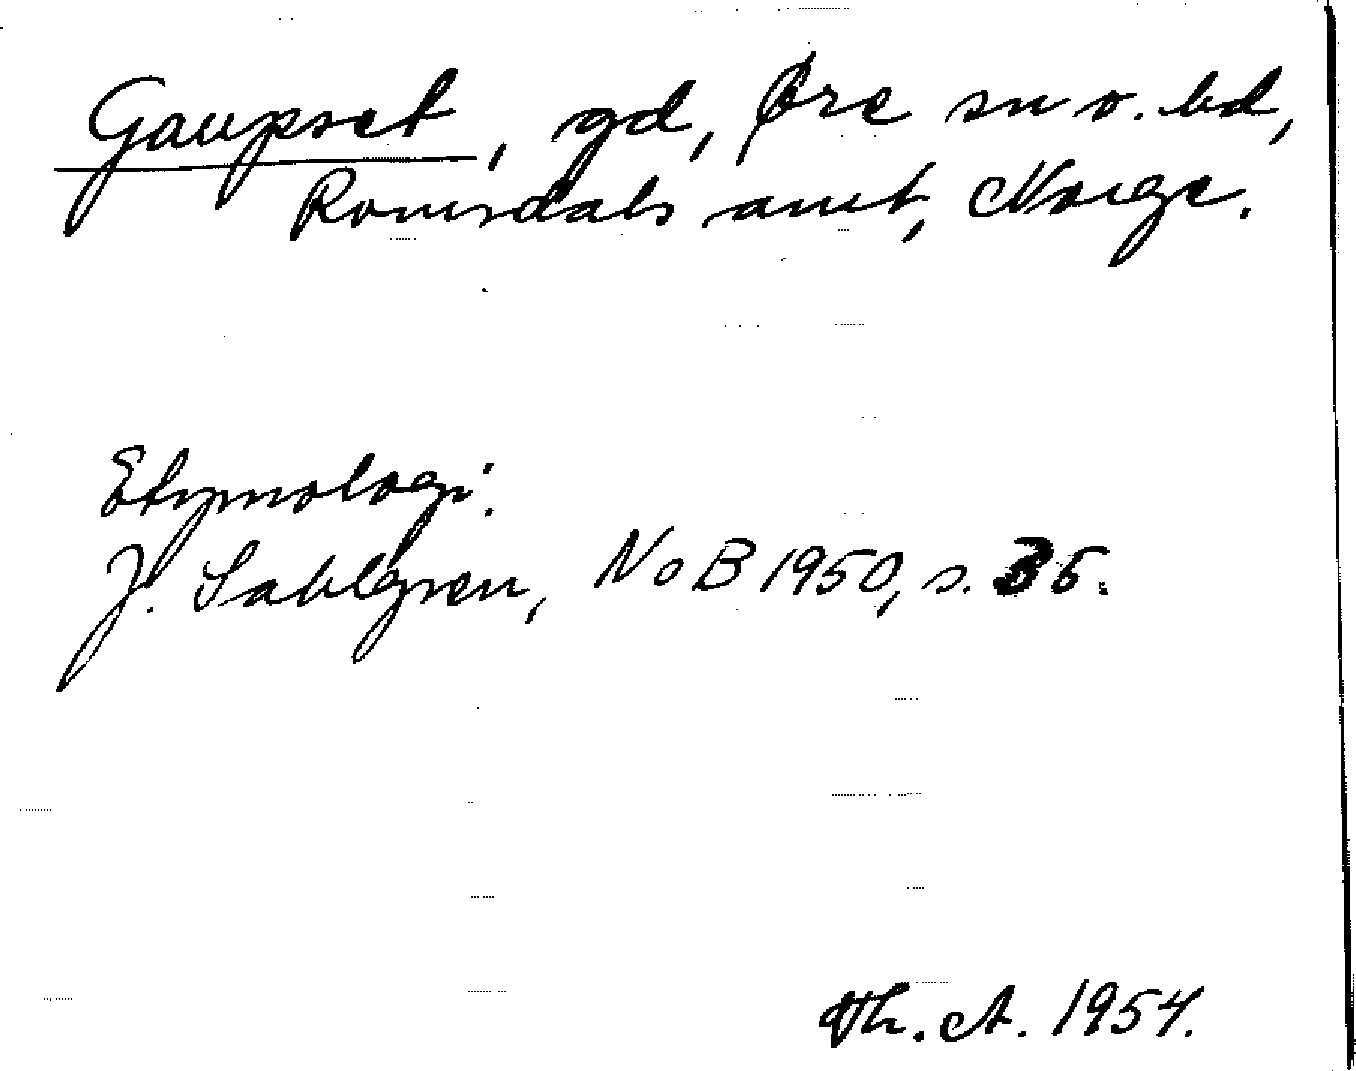 Gaupset, gd, Øre sn o. hd,
Romsdals amt, Norge.
Etymologi:
J. Sahlgren, NoB 1950, s. 35.
Th. A. 1954.